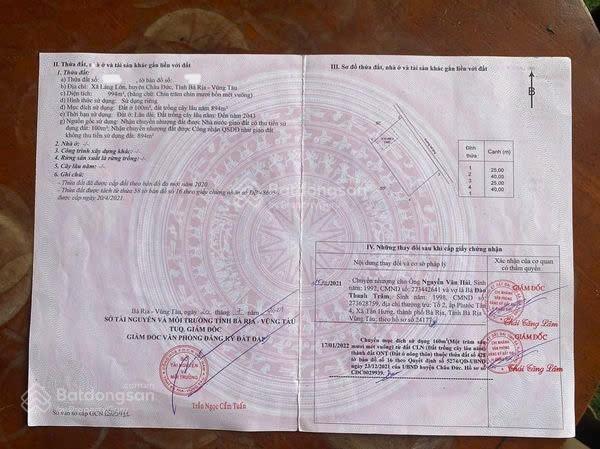 II. Thửa đất, nhà ở và tài sản khác gắn liền với đất
1. Thửa đất:
a) Thửa đất số: , tờ bản đồ số:
b) Địa chỉ: Xã Láng Lớn, huyện Châu Đức, Tỉnh Bà Rịa - Vũng Tàu
c) Diện tích: 994m², (bằng chữ: Chín trăm chín mươi bốn mét vuông)
d) Hình thức sử dụng: Sử dụng riêng
đ) Mục đích sử dụng: Đất ở 100m²; đất trồng cây lâu năm 894m²
e) Thời hạn sử dụng: Đất ở: Lâu dài; Đất trồng cây lâu năm: Đến năm 2043
g) Nguồn gốc sử dụng: Nhận chuyển nhượng đất được Nhà nước giao đất có thu tiền sử
dụng đất: 100m²; Nhận chuyển nhượng đất được Công nhận QSDĐ như giao đất
không thu tiền sử dụng đất: 894m²
2. Nhà ở: -/-
3. Công trình xây dựng khác: -/-
4. Rừng sản xuất là rừng trồng: -/-
5. Cây lâu năm: -/-
6. Ghi chú:
- Thửa đất đã được cấp đổi theo bản đồ đo mới năm 2020.
- Thửa đất được tách từ thửa 38 tờ bản đồ số 16 theo giấy chứng nhận số
được cấp ngày 20/4/2021.
Bà Rịa - Vũng Tàu,
SỞ TÀI NGUYÊN VÀ MÔI TRƯỜNG TỈNH BÀ RỊA - VŨNG TÀU
TUQ. GIÁM ĐỐC
GIÁM ĐỐC VĂN PHÒNG ĐĂNG KÝ ĐẤT ĐAI
SỞ
TÀI NGUYÊN
VÀ
MÔI TRƯỜNG
Trần Ngọc Cẩm Tuấn
Số vào sổ cấp GCN
III. Sơ đồ thửa đất, nhà ở và tài sản khác gắn liền với đất
B
Đỉnh thửa
Cạnh (m)
1
2
3
4
1
25,00
40,00
25,00
40,00
IV. Những thay đổi sau khi cấp giấy chứng nhận
Nội dung thay đổi và cơ sở pháp lý
Xác nhận của cơ quan
có thẩm quyền
/2021
Chuyển nhượng cho Ông Nguyễn Văn Hải, Sinh
năm: 1992, CMND số: 273442641 và vợ là Bà Đào
Thanh Trâm, Sinh năm: 1998, CMND số:
273628759, địa chỉ thường trú: Tổ 2, ấp Phước Tân
4, Xã Tân Hưng, thành phố Bà Rịa, Tỉnh Bà Rịa -
Vũng Tàu; theo hồ sơ số
GIÁM ĐỐC
Thái Căng Lâm
17/01/2022
Chuyển mục đích sử dụng 160m²(Một trăm sáu
mươi mét vuông) từ đất CLN (Đất trồng cây lâu năm)
thành đất ONT (Đất ở nông thôn) thuộc thửa đất số
tờ bản đồ số 16 theo Quyết định số 5274/QĐ-UBND
ngày 23/12/2021 của UBND huyện Châu Đức. Hồ sơ số
GIÁM ĐỐC
Thái Căng Lâm
Batdongsan
.com.vn
Batdongsan
Batdongsan